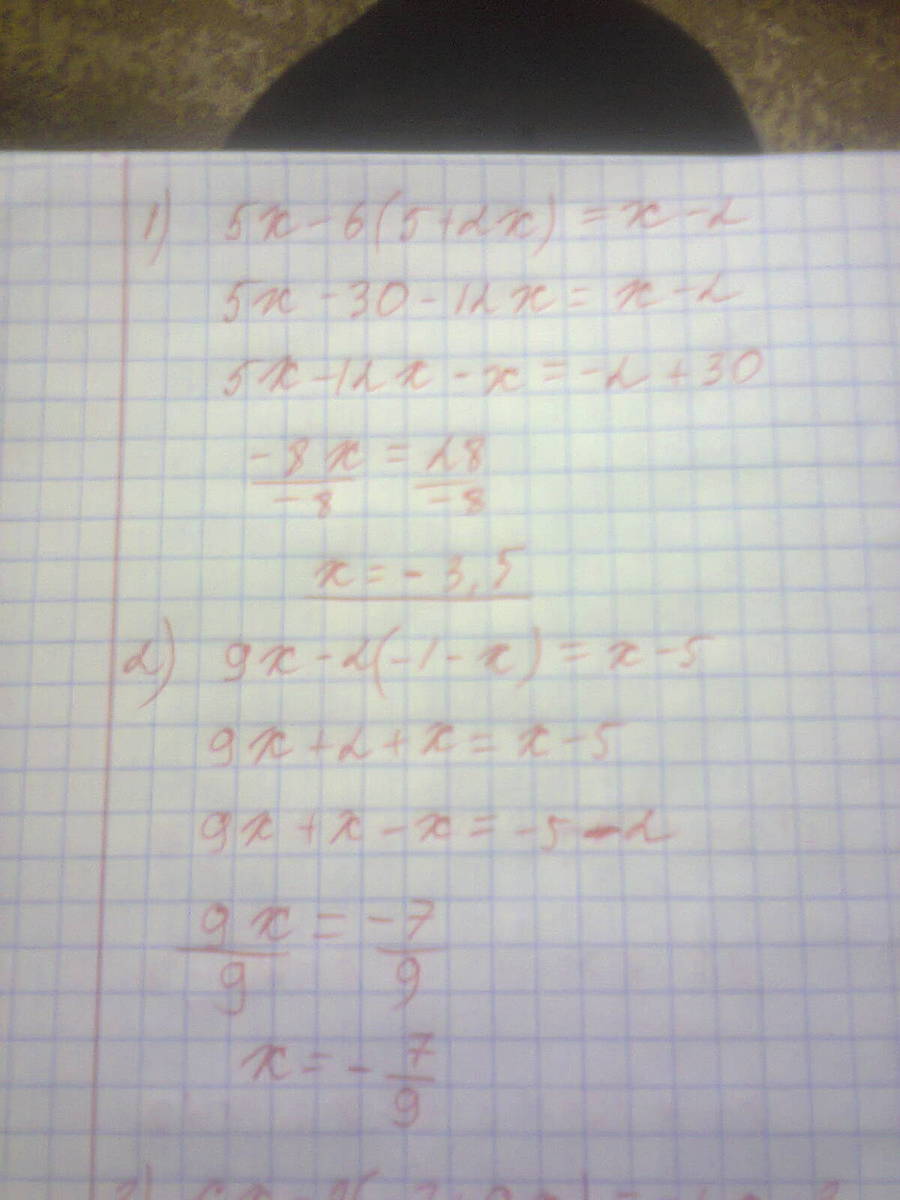 1) 5x - 6(5+2x) = x - 2
5x - 30 - 12x = x - 2
5x - 12x - x = -2 + 30
-8x/-8 = 28/-8
x = -3,5
2) 9x - 2(-1 - x) = x - 5
9x + 2 + x = x - 5
9x + x - x = -5 - 2
9x/9 = -7/9
x = -7/9